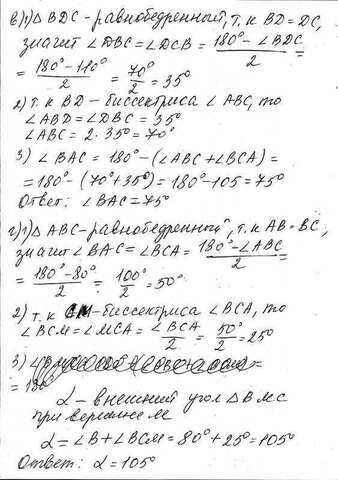 в) 1) Δ BDC - равнобедренный, т. к BD = DC,
значит ∠DBC = ∠DCB = (180° - ∠BDC)/2 =
= (180° - 110°)/2 = 70°/2 = 35°
2) т. к BD - биссектриса ∠ ABC, то
∠ABD = ∠DBC = 35°
∠ABC = 2 · 35° = 70°
3) ∠ BAC = 180° - (∠ABC + ∠BCA) =
= 180° - (70° + 35°) = 180° - 105 = 75°
Ответ: ∠ BAC = 75°
г) 1) Δ ABC - равнобедренный, т. к AB = BC,
значит ∠BAC = ∠BCA = (180° - ∠ABC)/2 =
= (180° - 80°)/2 = 100°/2 = 50°
2) т. к CM - биссектриса ∠BCA, то
∠BCM = ∠MCA = ∠BCA/2 = 50°/2 = 25°
3) =
= 180°
α - внешний угол Δ BMC
при вершине M
α = ∠B + ∠BCM = 80° + 25° = 105°
Ответ: α = 105°